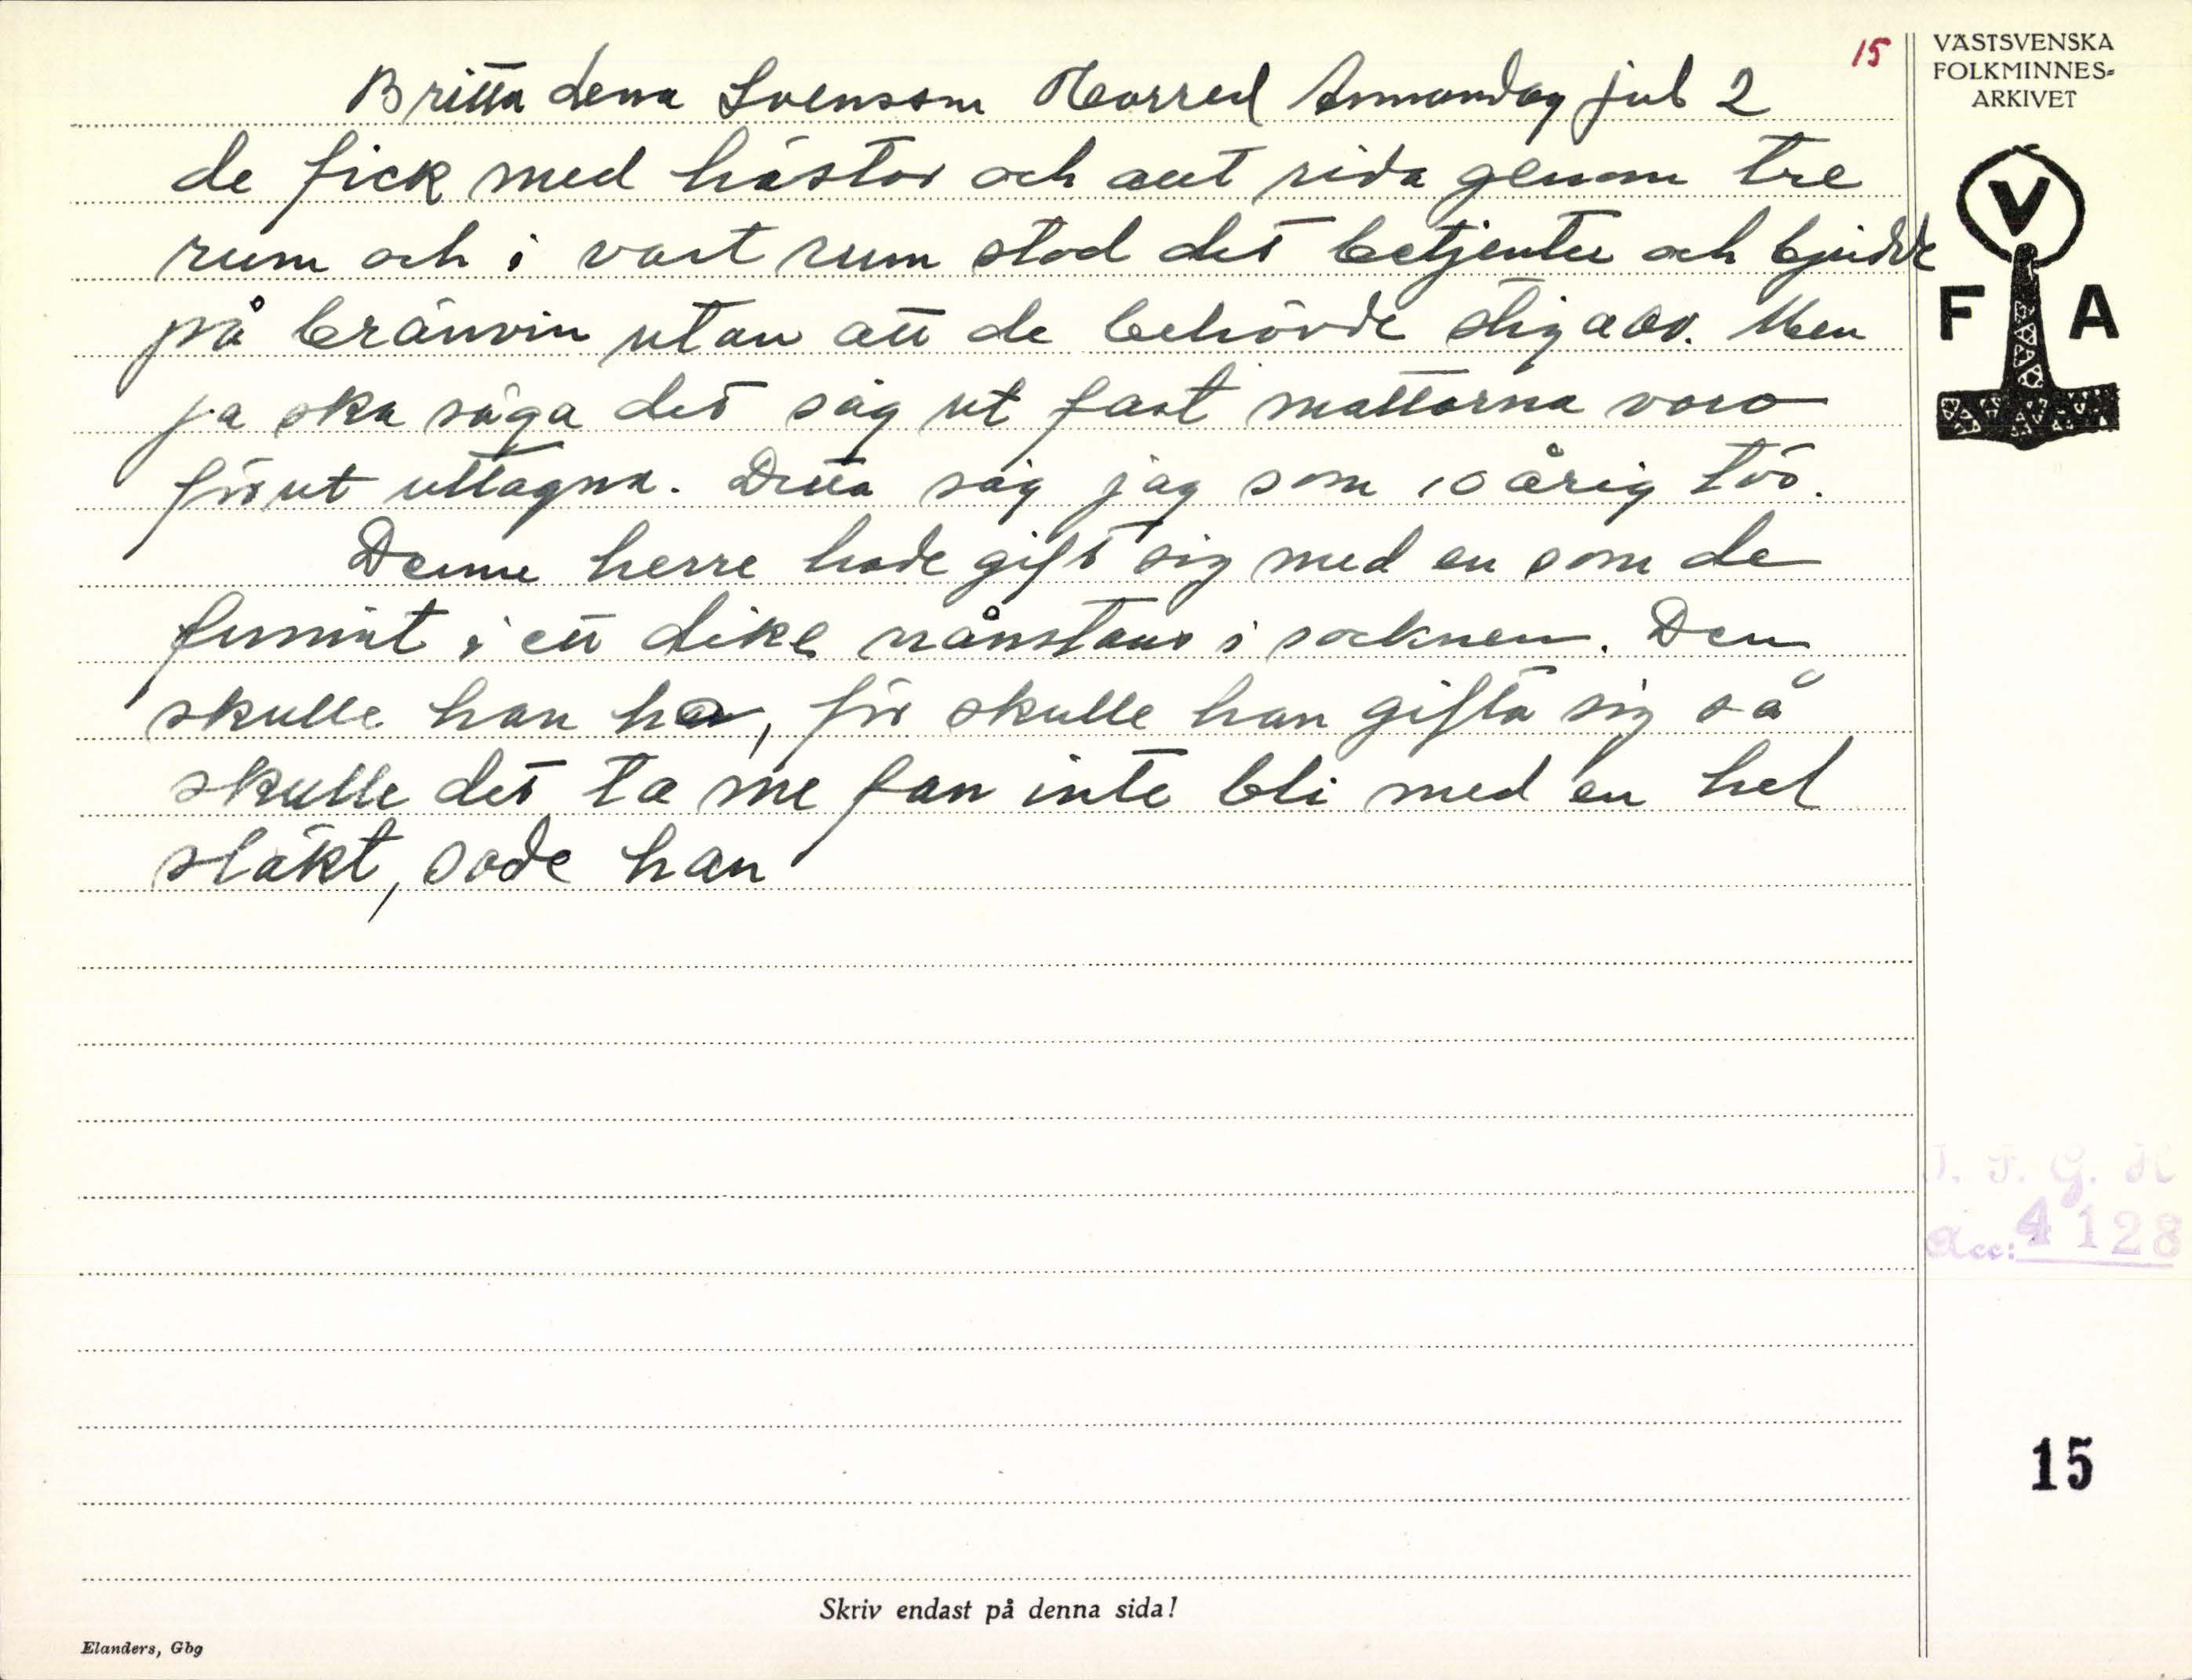 15
VÄSTSVENSKA
FOLKMINNES-
ARKIVET
Britta Lena Svensson Horred Annandag jul 2
de fick med hästar och aut rida genom tre
rum och i vart rum stod det betjenter och bjudde
på bränvin utan att de behövde stiga av. Men
ja ska säga det såg ut fast mattorna voro
förut uttagna. Detta såg jag som 10 årig tös.
Denne herre hade gift sig med en som de
funnit i ett dike nånstans i socknen. Den
skulle han ha, för skulle han gifta sig så
skulle det ta me fan inte bli med en hel
släkt, sade han
V
F A
Acc: 4128
15
Skriv endast på denna sida!
Elanders, Gbg